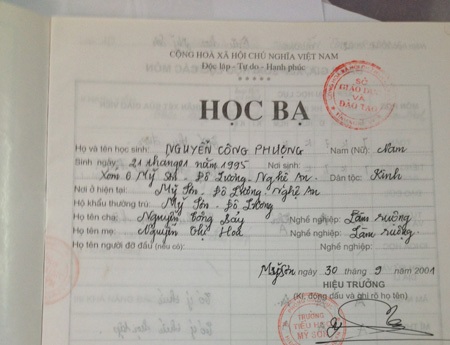 CỘNG HOÀ XÃ HỘI CHỦ NGHĨA VIỆT NAM
Độc lập - Tự do - Hạnh phúc
*****
SỞ GIÁO DỤC VÀ ĐÀO TẠO
HỌC BẠ
Họ và tên học sinh: NGUYỄN CÔNG PHƯỢNG Nam (Nữ): Nam
Sinh ngày 21 tháng 01 năm 1995 Nơi sinh:
Xóm 6 Mỹ Sơn - Đô Lương - Nghệ An Dân tộc: Kinh
Nơi ở hiện tại: Mỹ Sơn - Đô Lương - Nghệ An
Hộ khẩu thường trú: Mỹ Sơn - Đô Lương
Họ tên cha: Nguyễn Công Bảy Nghề nghiệp: Làm ruộng
Họ tên mẹ: Nguyễn Thị Hoa Nghề nghiệp: Làm ruộng
Họ tên người đỡ đầu (nếu có): Nghề nghiệp:
Mỹ Sơn ngày 30 tháng 9 năm 2001
HIỆU TRƯỞNG
(Kí, đóng dấu và ghi rõ họ tên)
TRƯỜNG
TIỂU HỌC
MỸ SƠN